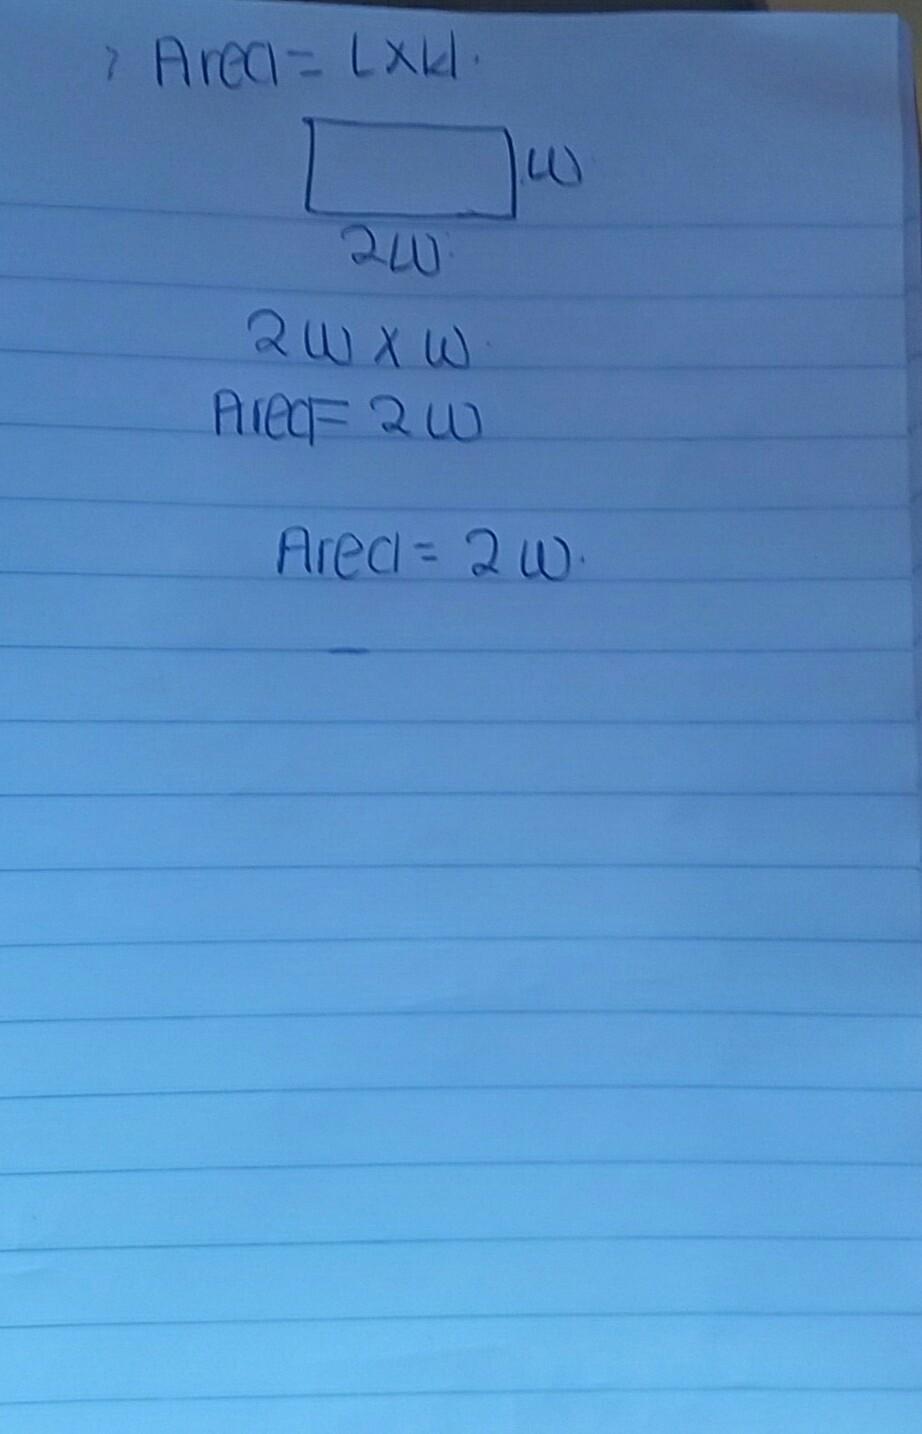 Area = L x W.
w
2w.
2w x w.
Area = 2w
Area = 2w.